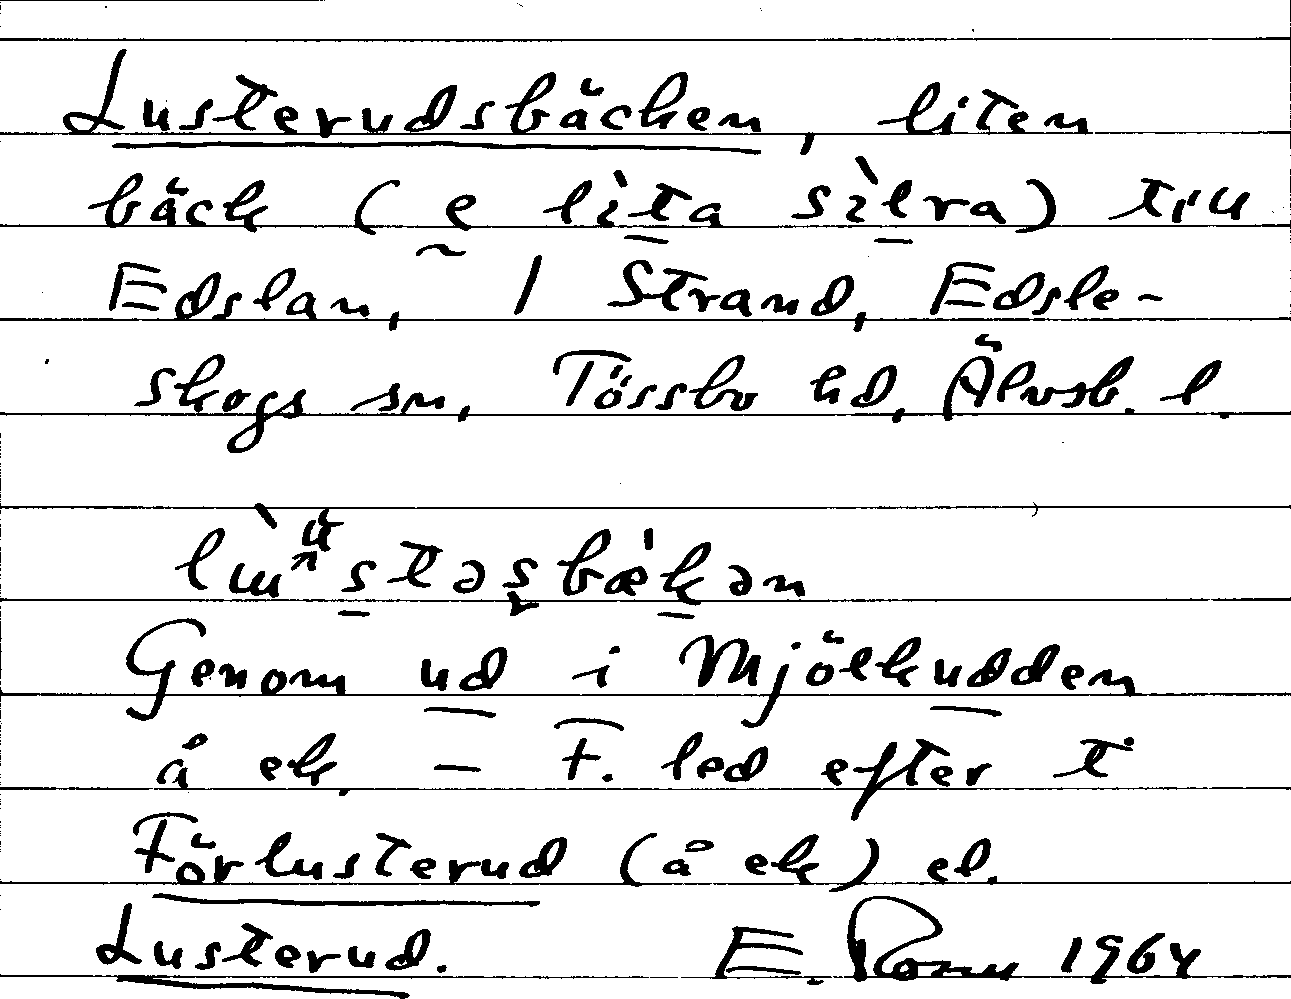 Lusterudsbäcken, liten
bäck (e lìta sìlra) till
Edslan, I Strand, Edsle-
skogs sn, Tössbo hd, Älvsb. l.
stəsbækən
Genom ud i Mjölkudden
å ek. – F. led efter t
Förlusterud (å ek) el.
Lusterud. E. 1964